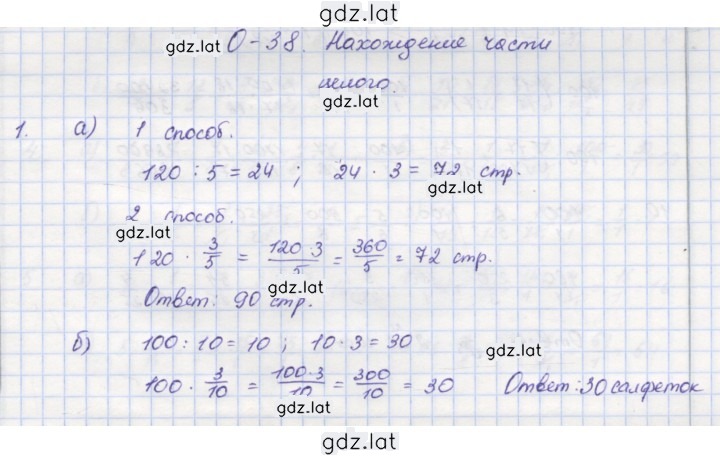 gdz.lat
О-38. Нахождение части
gdz.lat
целого.
gdz.lat
1. а) 1 способ.
120 : 5 = 24 ; 24 · 3 = 72 стр.
gdz.lat
2 способ.
gdz.lat
120 · 3/5 = 120·3/5 = 360/5 = 72 стр.
gdz.lat
Ответ: 90 стр.
б) 100 : 10 = 10 ; 10 · 3 = 30
gdz.lat
100 · 3/10 = 100·3/10 = 300/10 = 30 Ответ: 30 салфеток
gdz.lat
gdz.lat